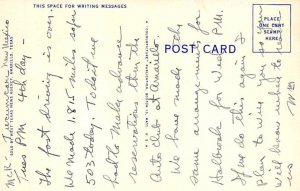 THIS SPACE FOR WRITING MESSAGES
POST CARD
PLACE
ONE CENT
STAMP
HERE
New Mexico
Tues PM 4th day -
The fast driving is over.
We made 1,815 miles so far
503 today. Today we
had to make advance
reservations thru the
Auto club at Amarillo.
We have made the
same arrangement for
Holbrooke for Wed. P.M.
If we do this again I
plan to wire you so you
will know where to reach
us